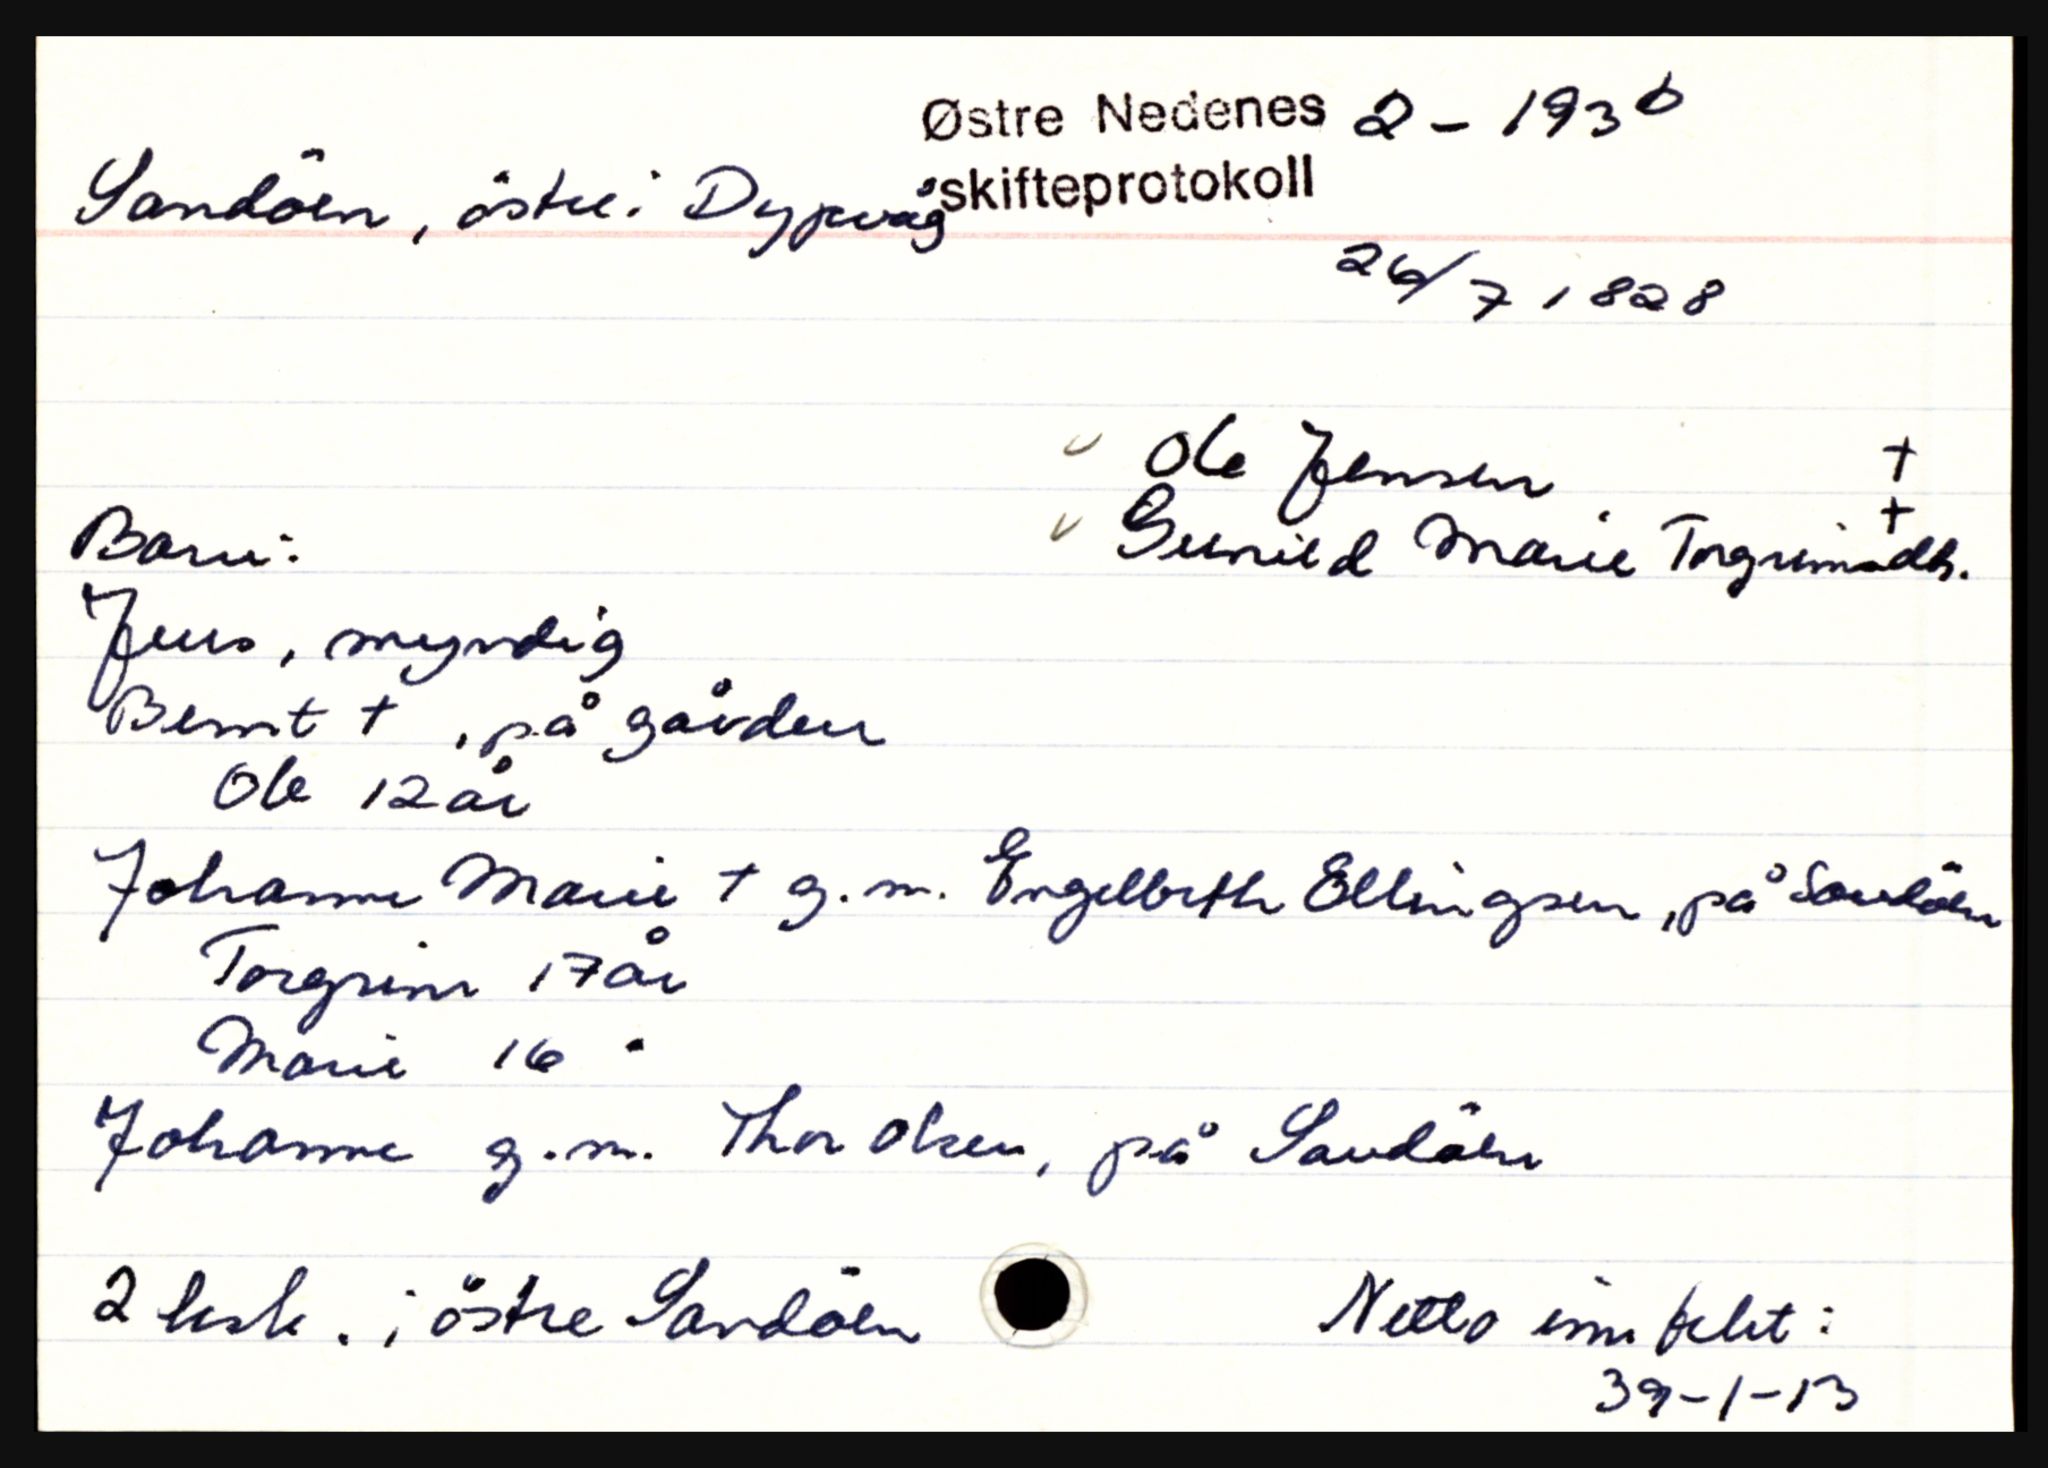 Østre Nedenes 2-193b
skifteprotokoll
Sandöen, östre i Dypvåg
26/7 1828
Ole Jensen †
Gunild Marie Torgrimsdh. †
Barn:
Jens, myndig
Bernt †, på gården
Ole 12 år
Johanne Marie † g.m. Engelbreth Ellingsen, på Sandöen
Torgrim 17 år
Marie 16 "
Johanne g.m. Thor Olsen, på Sandöen
2 . i östre Sandöen
Netto :
39-1-13